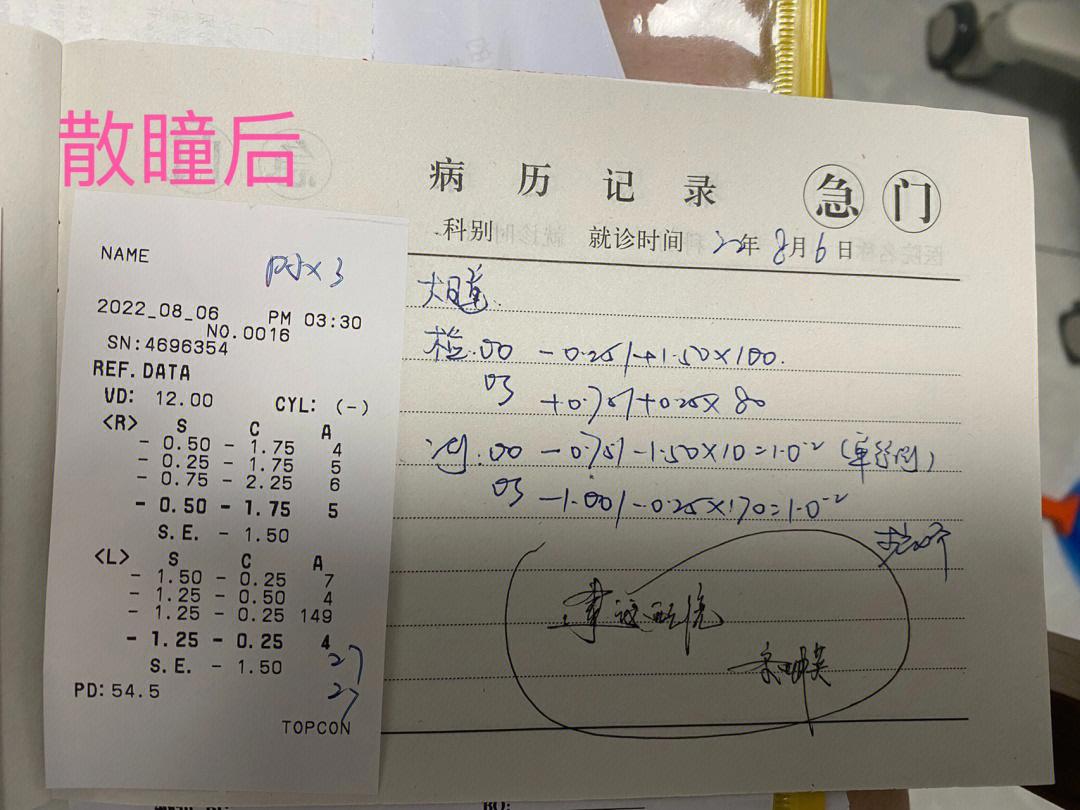 散瞳后
病历记录 急 门
科别 就诊时间 22年8月6日
NAME
2022_08_06 PM 03:30
NO.0016
SN:4696354
REF.DATA
VD: 12.00 CYL: (-)
<R> S C A
- 0.50 - 1.75 4
- 0.25 - 1.75 5
- 0.75 - 2.25 6
- 0.50 - 1.75 5
S.E. - 1.50
<L> S C A
- 1.50 - 0.25 7
- 1.25 - 0.50 4
- 1.25 - 0.25 149
- 1.25 - 0.25 4
S.E. - 1.50
27
27
PD:54.5
TOPCON
大瞳
检.OD -0.25/+1.50×100.
OS +0.75/+0.25×80
OD -0.75/-1.50×10=1.0⁻²
OS -1.00/-0.25×170=1.0⁻²